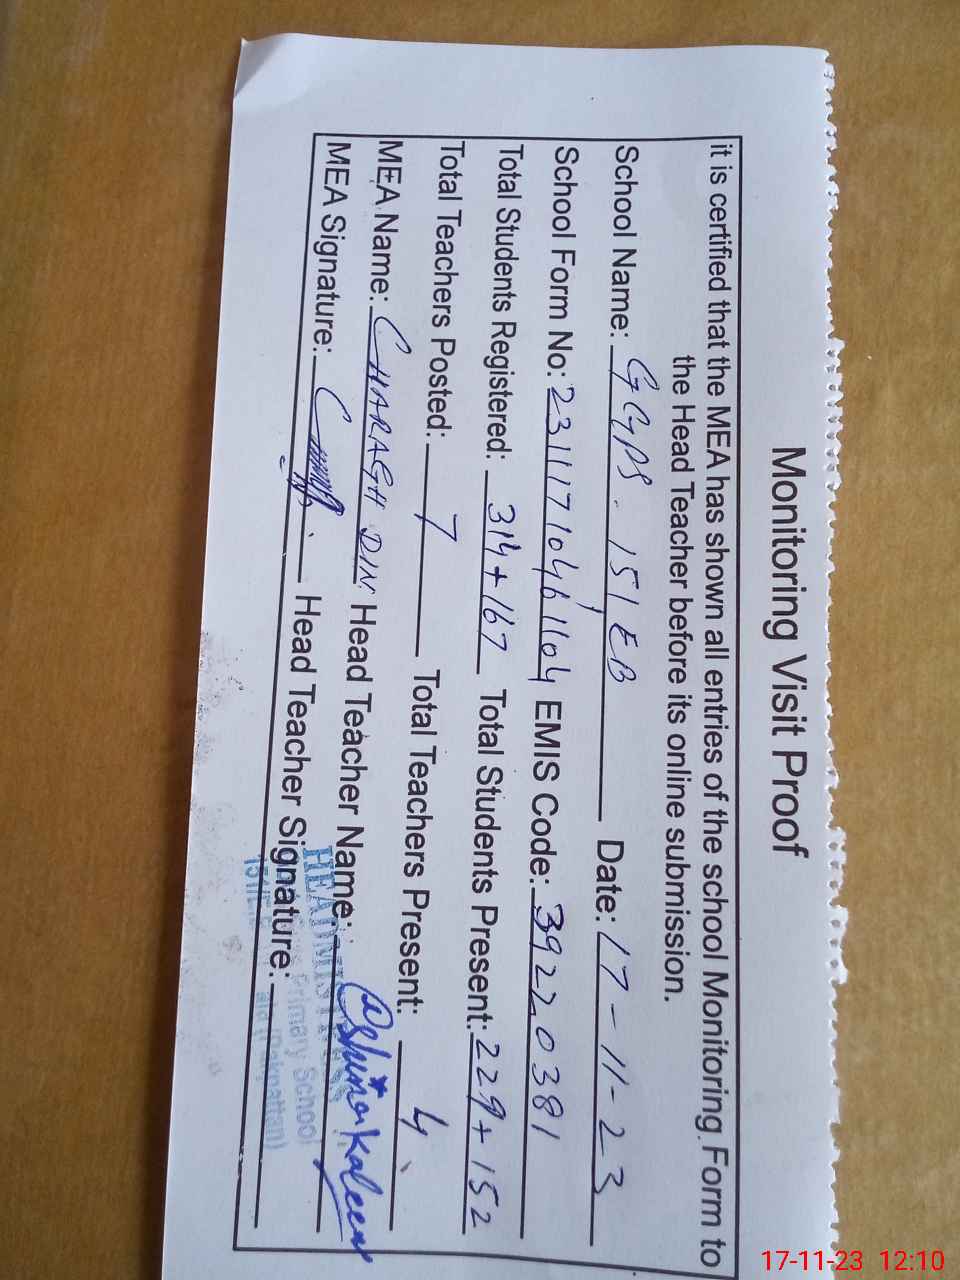 Monitoring Visit Proof
it is certified that the MEA has shown all entries of the school Monitoring Form to
the Head Teacher before its online submission.
School Name: GGPS. 151 EB Date: 17-11-23
School Form No: EMIS Code: 39220381
Total Students Registered: 314+167 Total Students Present: 229+152
Total Teachers Posted: 7 Total Teachers Present: 4
MEA Name: CHARAGH DIN Head Teacher Name:
MEA Signature: Head Teacher Signature:
HEADMISTRESS
Primary School
151/E
(Pakpattan)
17-11-23 12:10